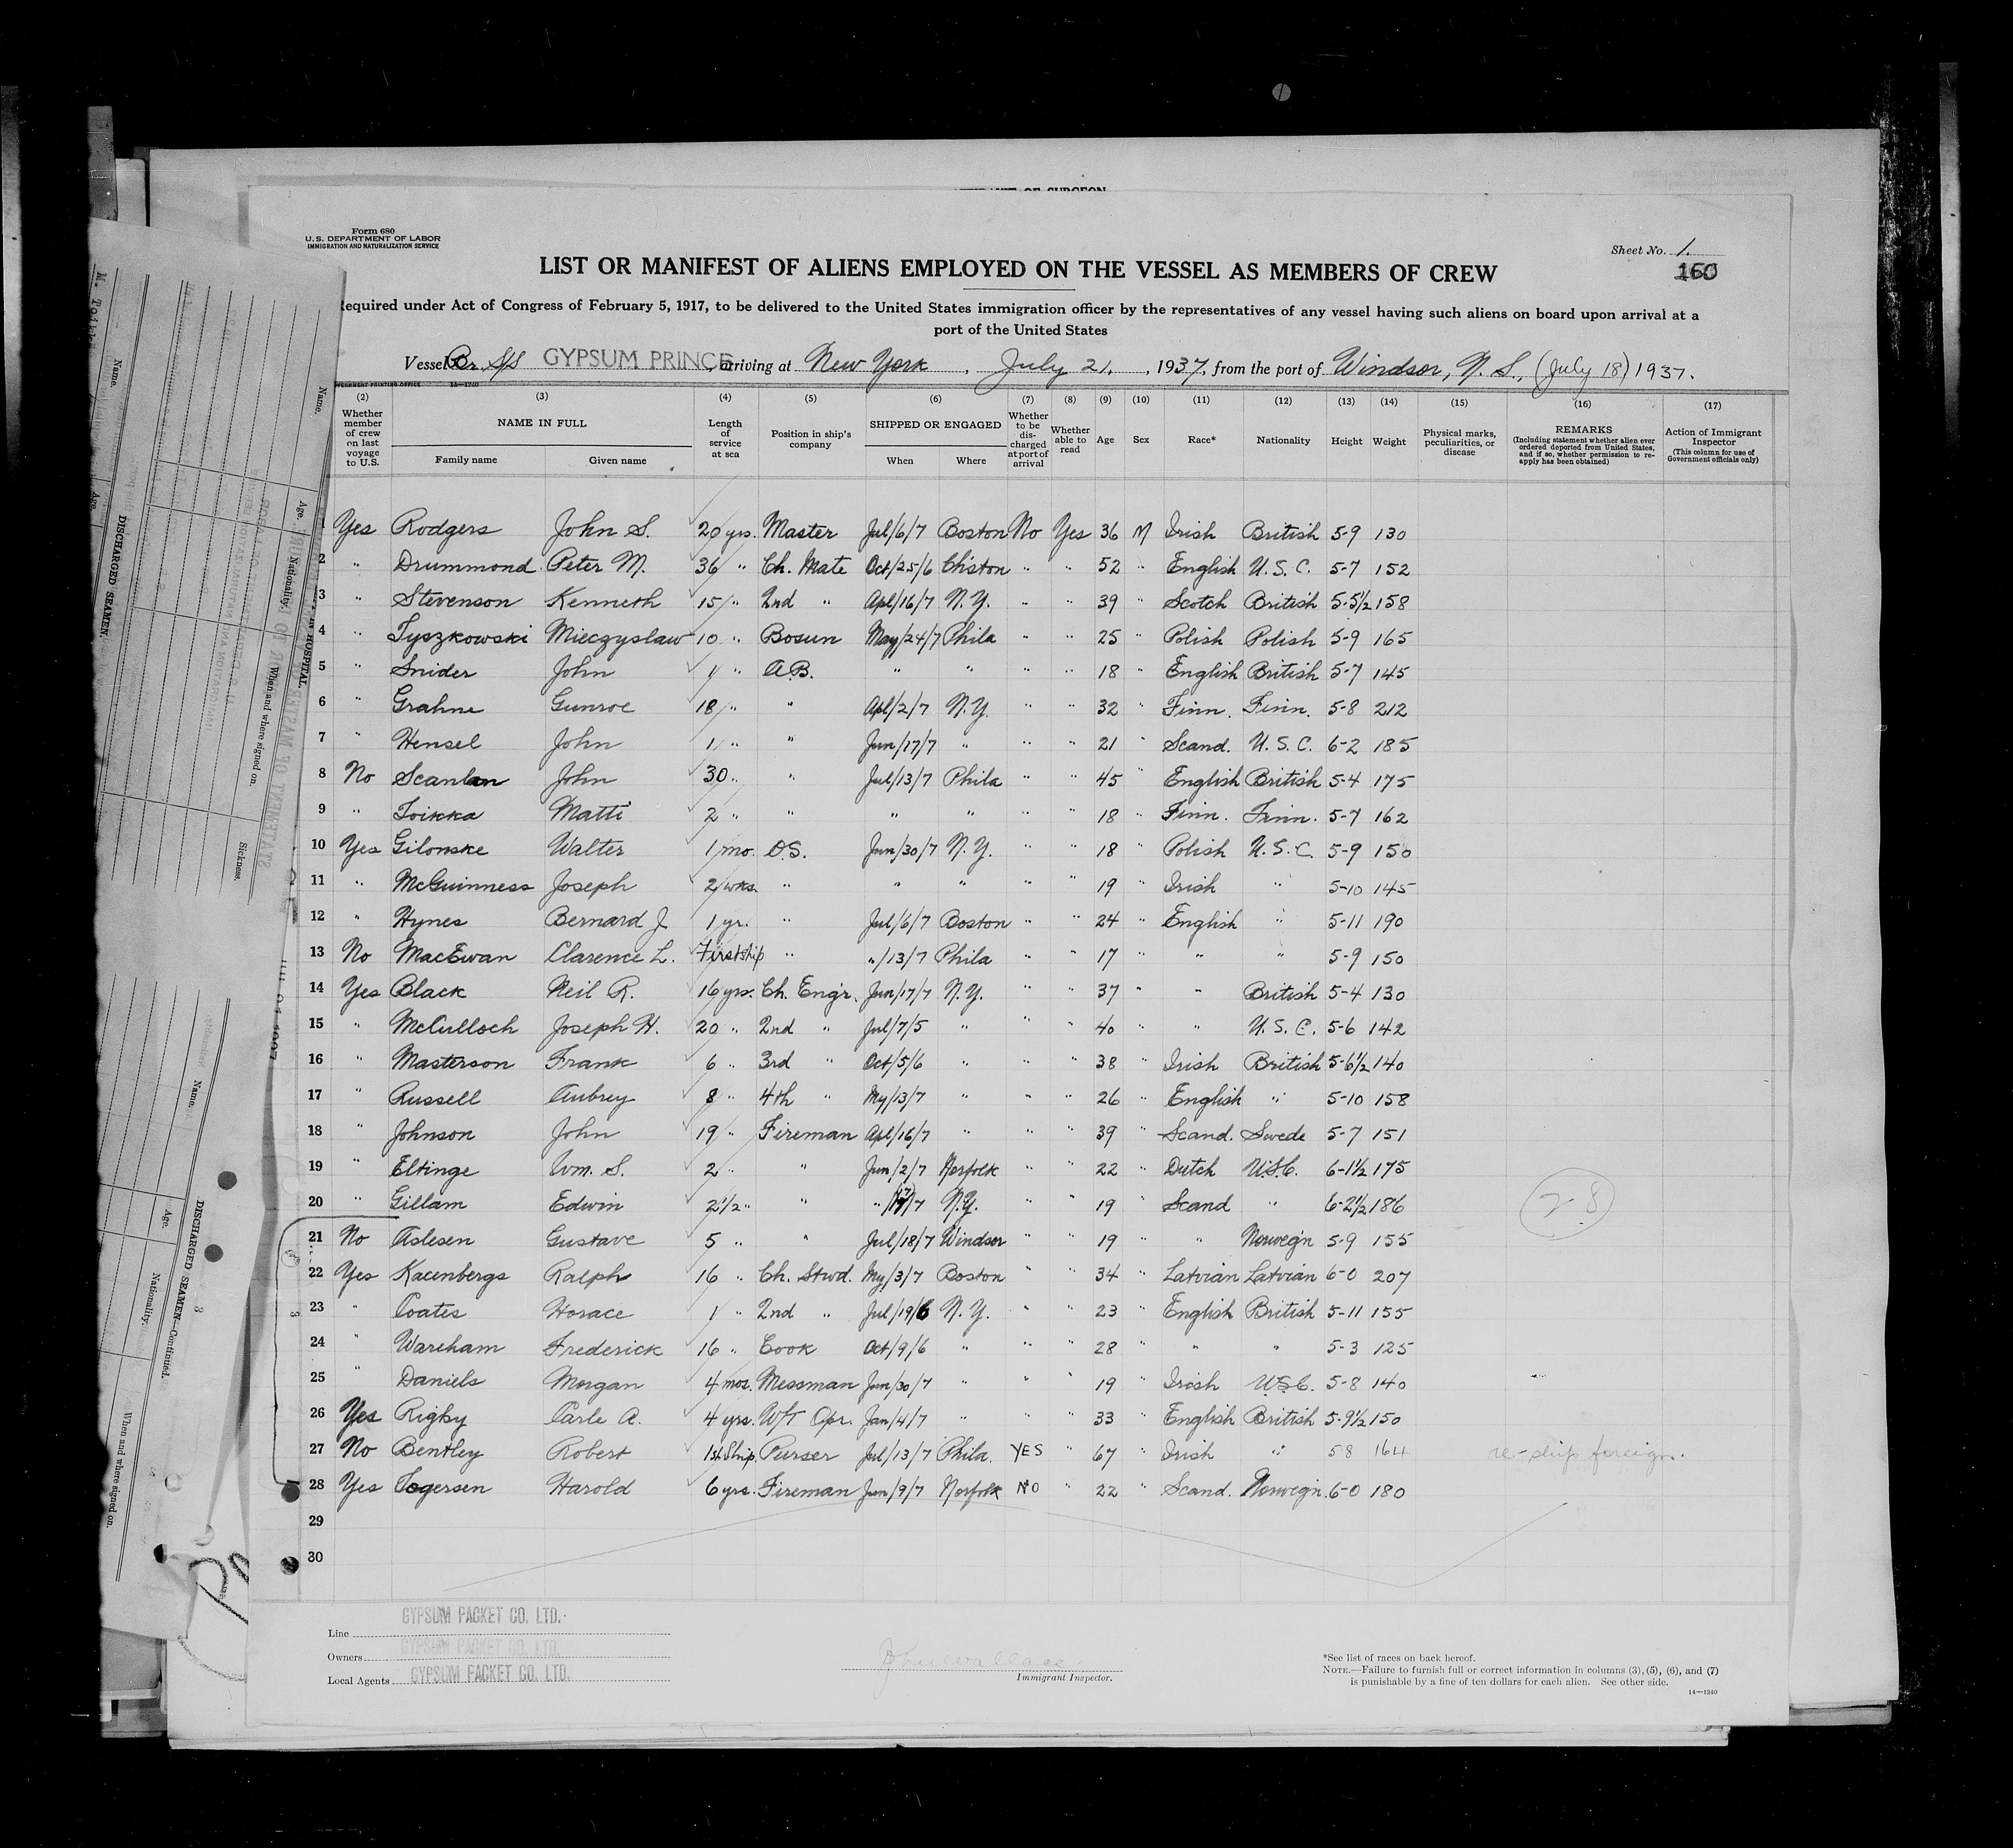 OF SURGEON
Form 680
U. S. DEPARTMENT OF LABOR
IMMIGRATION AND NATURALIZATION SERVICE
Sheet No. 1.
160
LIST OR MANIFEST OF ALIENS EMPLOYED ON THE VESSEL AS MEMBERS OF CREW
Required under Act of Congress of February 5, 1917, to be delivered to the United States immigration officer by the representatives of any vessel having such aliens on board upon arrival at a
port of the United States
Vessel Br. S/S GYPSUM PRINCE, arriving at New York, July 21, 1937, from the port of Windsor, N. S., (July 18) 1937.
(2) Whether member of crew on last voyage to U.S. (3) NAME IN FULL Family name Given name (4) Length of service at sea (5) Position in ship's company (6) SHIPPED OR ENGAGED When Where (7) Whether to be discharged at port of arrival (8) Whether able to read (9) Age (10) Sex (11) Race* (12) Nationality (13) Height (14) Weight (15) Physical marks, peculiarities, or disease (16) REMARKS (Including statement whether alien ever ordered deported from United States, and if so, whether permission to re-apply has been obtained) (17) Action of Immigrant Inspector (This column for use of Government officials only)
1 Yes Rodgers John S. 20 yrs. Master Jul/6/7 Boston No Yes 36 M Irish British 5-9 130
2 " Drummond Peter M. 36 " Ch. Mate Oct/25/6 Ch'ston " " 52 " English U. S. C. 5-7 152
3 " Stevenson Kenneth 15 " 2nd " Apl/16/7 N.Y. " " 39 " Scotch British 5-5½ 158
4 " Tyszkowski Mieczyslaw 10 " Bosun May/24/7 Phila " " 25 " Polish Polish 5-9 165
5 " Snider John 4 " A.B. " " " " 18 " English British 5-7 145
6 " Grahne Gunroe 18 " " Apl/2/7 N.Y. " " 32 " Finn. Finn. 5-8 212
7 " Hensel John 1 " " Jun/17/7 " " " 21 " Scand. U. S. C. 6-2 185
8 No Scanlan John 30 " " Jul/13/7 Phila " " 45 " English British 5-4 175
9 " Toikka Matti 2 " " " " " " 18 " Finn. Finn. 5-7 162
10 Yes Gilonske Walter 1 mo. O.S. Jun/30/7 N.Y. " " 18 " Polish U. S. C. 5-9 150
11 " McGuinness Joseph 2 wks. " " " " " 19 " Irish " 5-10 145
12 " Hynes Bernard J 1 yr. " Jul/6/7 Boston " " 24 " English " 5-11 190
13 No MacEwan Clarence L. First ship " "/13/7 Phila " " 17 " " " 5-9 150
14 Yes Black Neil R. 16 yrs. Ch. Engr. Jun/17/7 N.Y. " " 37 " " British 5-4 130
15 " McCulloch Joseph H. 20 " 2nd " Jul/7/5 " " " 40 " " U. S. C. 5-6 142
16 " Masterson Frank 6 " 3rd " Oct/5/6 " " " 38 " Irish British 5-6½ 140
17 " Russell Aubrey 8 " 4th " My/13/7 " " " 26 " English " 5-10 158
18 " Johnson John 19 " Fireman Apl/16/7 " " " 39 " Scand. Swede 5-7 151
19 " Eltinge Wm. S. 2 " " Jun/2/7 Norfolk " " 22 " Dutch U.S.C. 6-1½ 175
20 " Gillam Edwin 2½ " " "/17/7 N.Y. " " 19 " Scand " 6-2½ 186
28
21 No Aslesen Gustave 5 " " Jul/18/7 Windsor " " 19 " " Norweg'n 5-9 155
22 Yes Kacenbergs Ralph 16 " Ch. Stwd. My/3/7 Boston " " 34 " Latvian Latvian 6-0 207
23 " Coates Horace 1 " 2nd " Jul/19/6 N.Y. " " 23 " English British 5-11 155
24 " Wareham Frederick 16 " Cook Oct/9/6 " " " 28 " " " 5-3 125
25 " Daniels Morgan 4 mos. Messman Jun/30/7 " " " 19 " Irish U.S.C. 5-8 140
26 Yes Rigby Carle A. 4 yrs. W/T Opr. Jan/4/7 " " " 33 " English British 5-9½ 150
27 No Bentley Robert 1st Ship Purser Jul/13/7 Phila. YES " 67 " Irish " 5 8 164 re-ship foreign.
28 Yes Togersen Harold 6 yrs. Fireman Jun/9/7 Norfolk NO " 22 " Scand. Norweg'n 6-0 180
29
30
Line GYPSUM PACKET CO. LTD.
Owners GYPSUM PACKET CO. LTD.
Local Agents GYPSUM PACKET CO. LTD.
Immigrant Inspector.
*See list of races on back hereof.
NOTE.—Failure to furnish full or correct information in columns (3), (5), (6), and (7)
is punishable by a fine of ten dollars for each alien. See other side.
14—1240
Name.
Age.
Nationality.
When and where signed on.
Sickness.
DISCHARGED SEAMEN.
DISCHARGED SEAMEN—Continued.
Name.
Age.
Nationality.
When and where signed on.